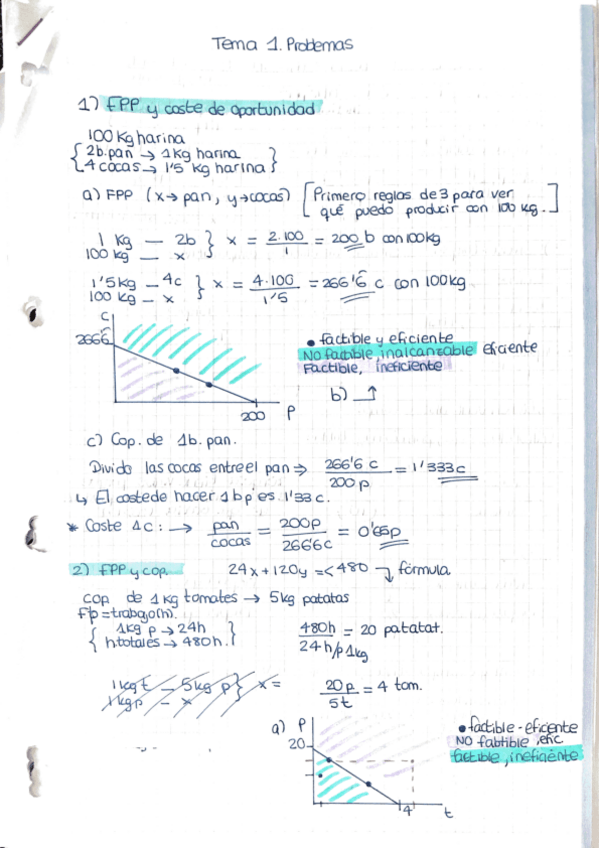 Tema 1. Problemas
1) FPP y coste de oportunidad
100 Kg harina
2b.pan → 1Kg harina
4 cocas → 1'5 Kg harina
a) FPP (x→ pan, y→cocas) [Primero reglas de 3 para ver
qué puedo producir con 100 kg.]
1 Kg — 2b } x = 2·100 / 1 = 200 b con 100kg
100 kg — x
1'5kg — 4c } x = 4·100 / 1'5 = 266'6 c con 100kg
100 kg — x
C
266'6
200 P
• factible y eficiente
No factible, inalcanzable eficiente
Factible, ineficiente
b) ↑
c) Cop. de 1b. pan.
Divido las cocas entre el pan ⇒ 266'6 c / 200 p = 1'333 c
↳ El coste de hacer 1 b p es 1'33 c.
* Coste 1c: → pan / cocas = 200p / 266'6c = 0'65p
2) FPP y cop. 24x + 120y =< 480 → fórmula
cop de 1 kg tomates → 5kg patatas
fp = trabajo(h).
1kg p → 24h
h totales → 480h.
480h / 24h/p 1kg = 20 patatat.
1 kg t — 5kg p } x =
1 kg p — x
20p / 5t = 4 tom.
a) P
20
4 t
• factible - eficente
NO fabtible, efic
factible, ineficiente